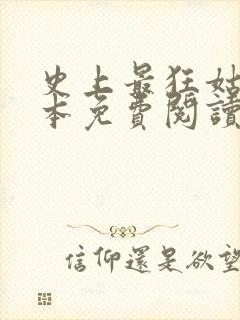 史上最狂姑
本免費閱讀
信仰還是欲望